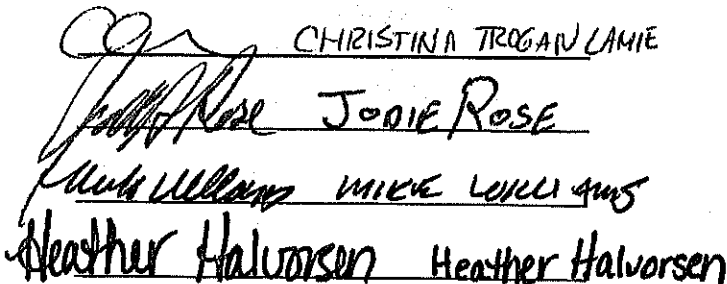 CHRISTINA TROGAN LAMIE
Rose JODIE ROSE
Williams MIKE WILLIAMS
Heather Halvorsen Heather Halvorsen